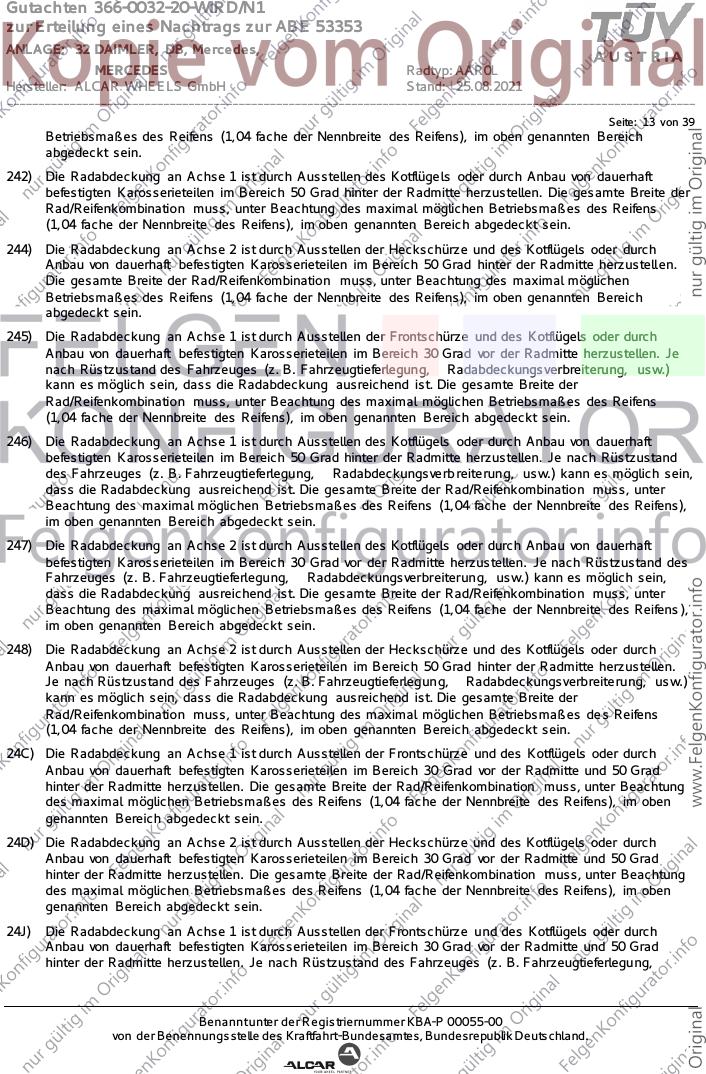 Gutachten 366-0032-20-WIRD/N1
zur Erteilung eines Nachtrags zur ABE 53353
ANLAGE: 32 DAIMLER, DB, Mercedes,
MERCEDES
Radtyp: AAROL
Hersteller: ALCAR WHEELS GmbH
Stand: 25.08.2021
TÜV
AUSTRIA
Kopie vom Original
Seite: 13 von 39
Betriebsmaßes des Reifens (1,04 fache der Nennbreite des Reifens), im oben genannten Bereich
abgedeckt sein.
242) Die Radabdeckung an Achse 1 ist durch Ausstellen des Kotflügels oder durch Anbau von dauerhaft
befestigten Karosserieteilen im Bereich 50 Grad hinter der Radmitte herzustellen. Die gesamte Breite der
Rad/Reifenkombination muss, unter Beachtung des maximal möglichen Betriebsmaßes des Reifens
(1,04 fache der Nennbreite des Reifens), im oben genannten Bereich abgedeckt sein.
244) Die Radabdeckung an Achse 2 ist durch Ausstellen der Heckschürze und des Kotflügels oder durch
Anbau von dauerhaft befestigten Karosserieteilen im Bereich 50 Grad hinter der Radmitte herzustellen.
Die gesamte Breite der Rad/Reifenkombination muss, unter Beachtung des maximal möglichen
Betriebsmaßes des Reifens (1,04 fache der Nennbreite des Reifens), im oben genannten Bereich
abgedeckt sein.
245) Die Radabdeckung an Achse 1 ist durch Ausstellen der Frontschürze und des Kotflügels oder durch
Anbau von dauerhaft befestigten Karosserieteilen im Bereich 30 Grad vor der Radmitte herzustellen. Je
nach Rüstzustand des Fahrzeuges (z. B. Fahrzeugtieferlegung, Radabdeckungsverbreiterung, usw.)
kann es möglich sein, dass die Radabdeckung ausreichend ist. Die gesamte Breite der
Rad/Reifenkombination muss, unter Beachtung des maximal möglichen Betriebsmaßes des Reifens
(1,04 fache der Nennbreite des Reifens), im oben genannten Bereich abgedeckt sein.
246) Die Radabdeckung an Achse 1 ist durch Ausstellen des Kotflügels oder durch Anbau von dauerhaft
befestigten Karosserieteilen im Bereich 50 Grad hinter der Radmitte herzustellen. Je nach Rüstzustand
des Fahrzeuges (z. B. Fahrzeugtieferlegung, Radabdeckungsverbreiterung, usw.) kann es möglich sein,
dass die Radabdeckung ausreichend ist. Die gesamte Breite der Rad/Reifenkombination muss, unter
Beachtung des maximal möglichen Betriebsmaßes des Reifens (1,04 fache der Nennbreite des Reifens),
im oben genannten Bereich abgedeckt sein.
247) Die Radabdeckung an Achse 2 ist durch Ausstellen des Kotflügels oder durch Anbau von dauerhaft
befestigten Karosserieteilen im Bereich 30 Grad vor der Radmitte herzustellen. Je nach Rüstzustand des
Fahrzeuges (z. B. Fahrzeugtieferlegung, Radabdeckungsverbreiterung, usw.) kann es möglich sein,
dass die Radabdeckung ausreichend ist. Die gesamte Breite der Rad/Reifenkombination muss, unter
Beachtung des maximal möglichen Betriebsmaßes des Reifens (1,04 fache der Nennbreite des Reifens),
im oben genannten Bereich abgedeckt sein.
248) Die Radabdeckung an Achse 2 ist durch Ausstellen der Heckschürze und des Kotflügels oder durch
Anbau von dauerhaft befestigten Karosserieteilen im Bereich 50 Grad hinter der Radmitte herzustellen.
Je nach Rüstzustand des Fahrzeuges (z. B. Fahrzeugtieferlegung, Radabdeckungsverbreiterung, usw.)
kann es möglich sein, dass die Radabdeckung ausreichend ist. Die gesamte Breite der
Rad/Reifenkombination muss, unter Beachtung des maximal möglichen Betriebsmaßes des Reifens
(1,04 fache der Nennbreite des Reifens), im oben genannten Bereich abgedeckt sein.
24C) Die Radabdeckung an Achse 1 ist durch Ausstellen der Frontschürze und des Kotflügels oder durch
Anbau von dauerhaft befestigten Karosserieteilen im Bereich 30 Grad vor der Radmitte und 50 Grad
hinter der Radmitte herzustellen. Die gesamte Breite der Rad/Reifenkombination muss, unter Beachtung
des maximal möglichen Betriebsmaßes des Reifens (1,04 fache der Nennbreite des Reifens), im oben
genannten Bereich abgedeckt sein.
24D) Die Radabdeckung an Achse 2 ist durch Ausstellen der Heckschürze und des Kotflügels oder durch
Anbau von dauerhaft befestigten Karosserieteilen im Bereich 30 Grad vor der Radmitte und 50 Grad
hinter der Radmitte herzustellen. Die gesamte Breite der Rad/Reifenkombination muss, unter Beachtung
des maximal möglichen Betriebsmaßes des Reifens (1,04 fache der Nennbreite des Reifens), im oben
genannten Bereich abgedeckt sein.
24J) Die Radabdeckung an Achse 1 ist durch Ausstellen der Frontschürze und des Kotflügels oder durch
Anbau von dauerhaft befestigten Karosserieteilen im Bereich 30 Grad vor der Radmitte und 50 Grad
hinter der Radmitte herzustellen. Je nach Rüstzustand des Fahrzeuges (z. B. Fahrzeugtieferlegung,
FELGEN
KONFIGURATOR
FelgenKonfigurator.info
nur gültig im Original
www.FelgenKonfigurator.info
Original
Benannt unter der Registriernummer KBA-P 00055-00
von der Benennungsstelle des Kraftfahrt-Bundesamtes, Bundesrepublik Deutschland.
ALCAR